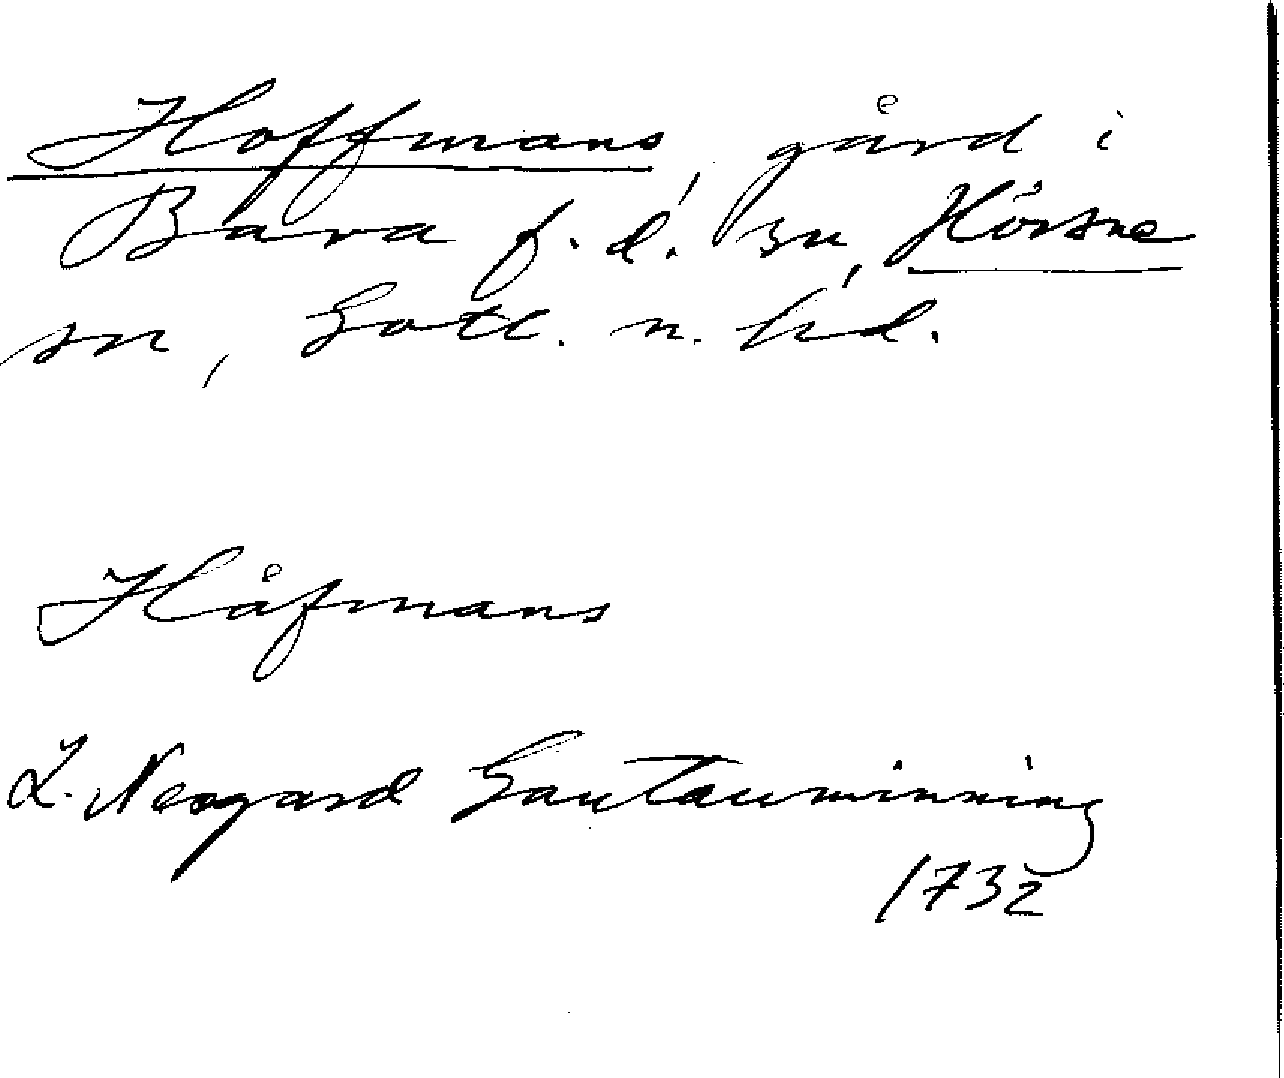 Hoffmans, gård i
Bara f. d. sn, Hörsne
sn, Gotl. n. hd.
Håfmans
L. Neogard Gautauminning
1732